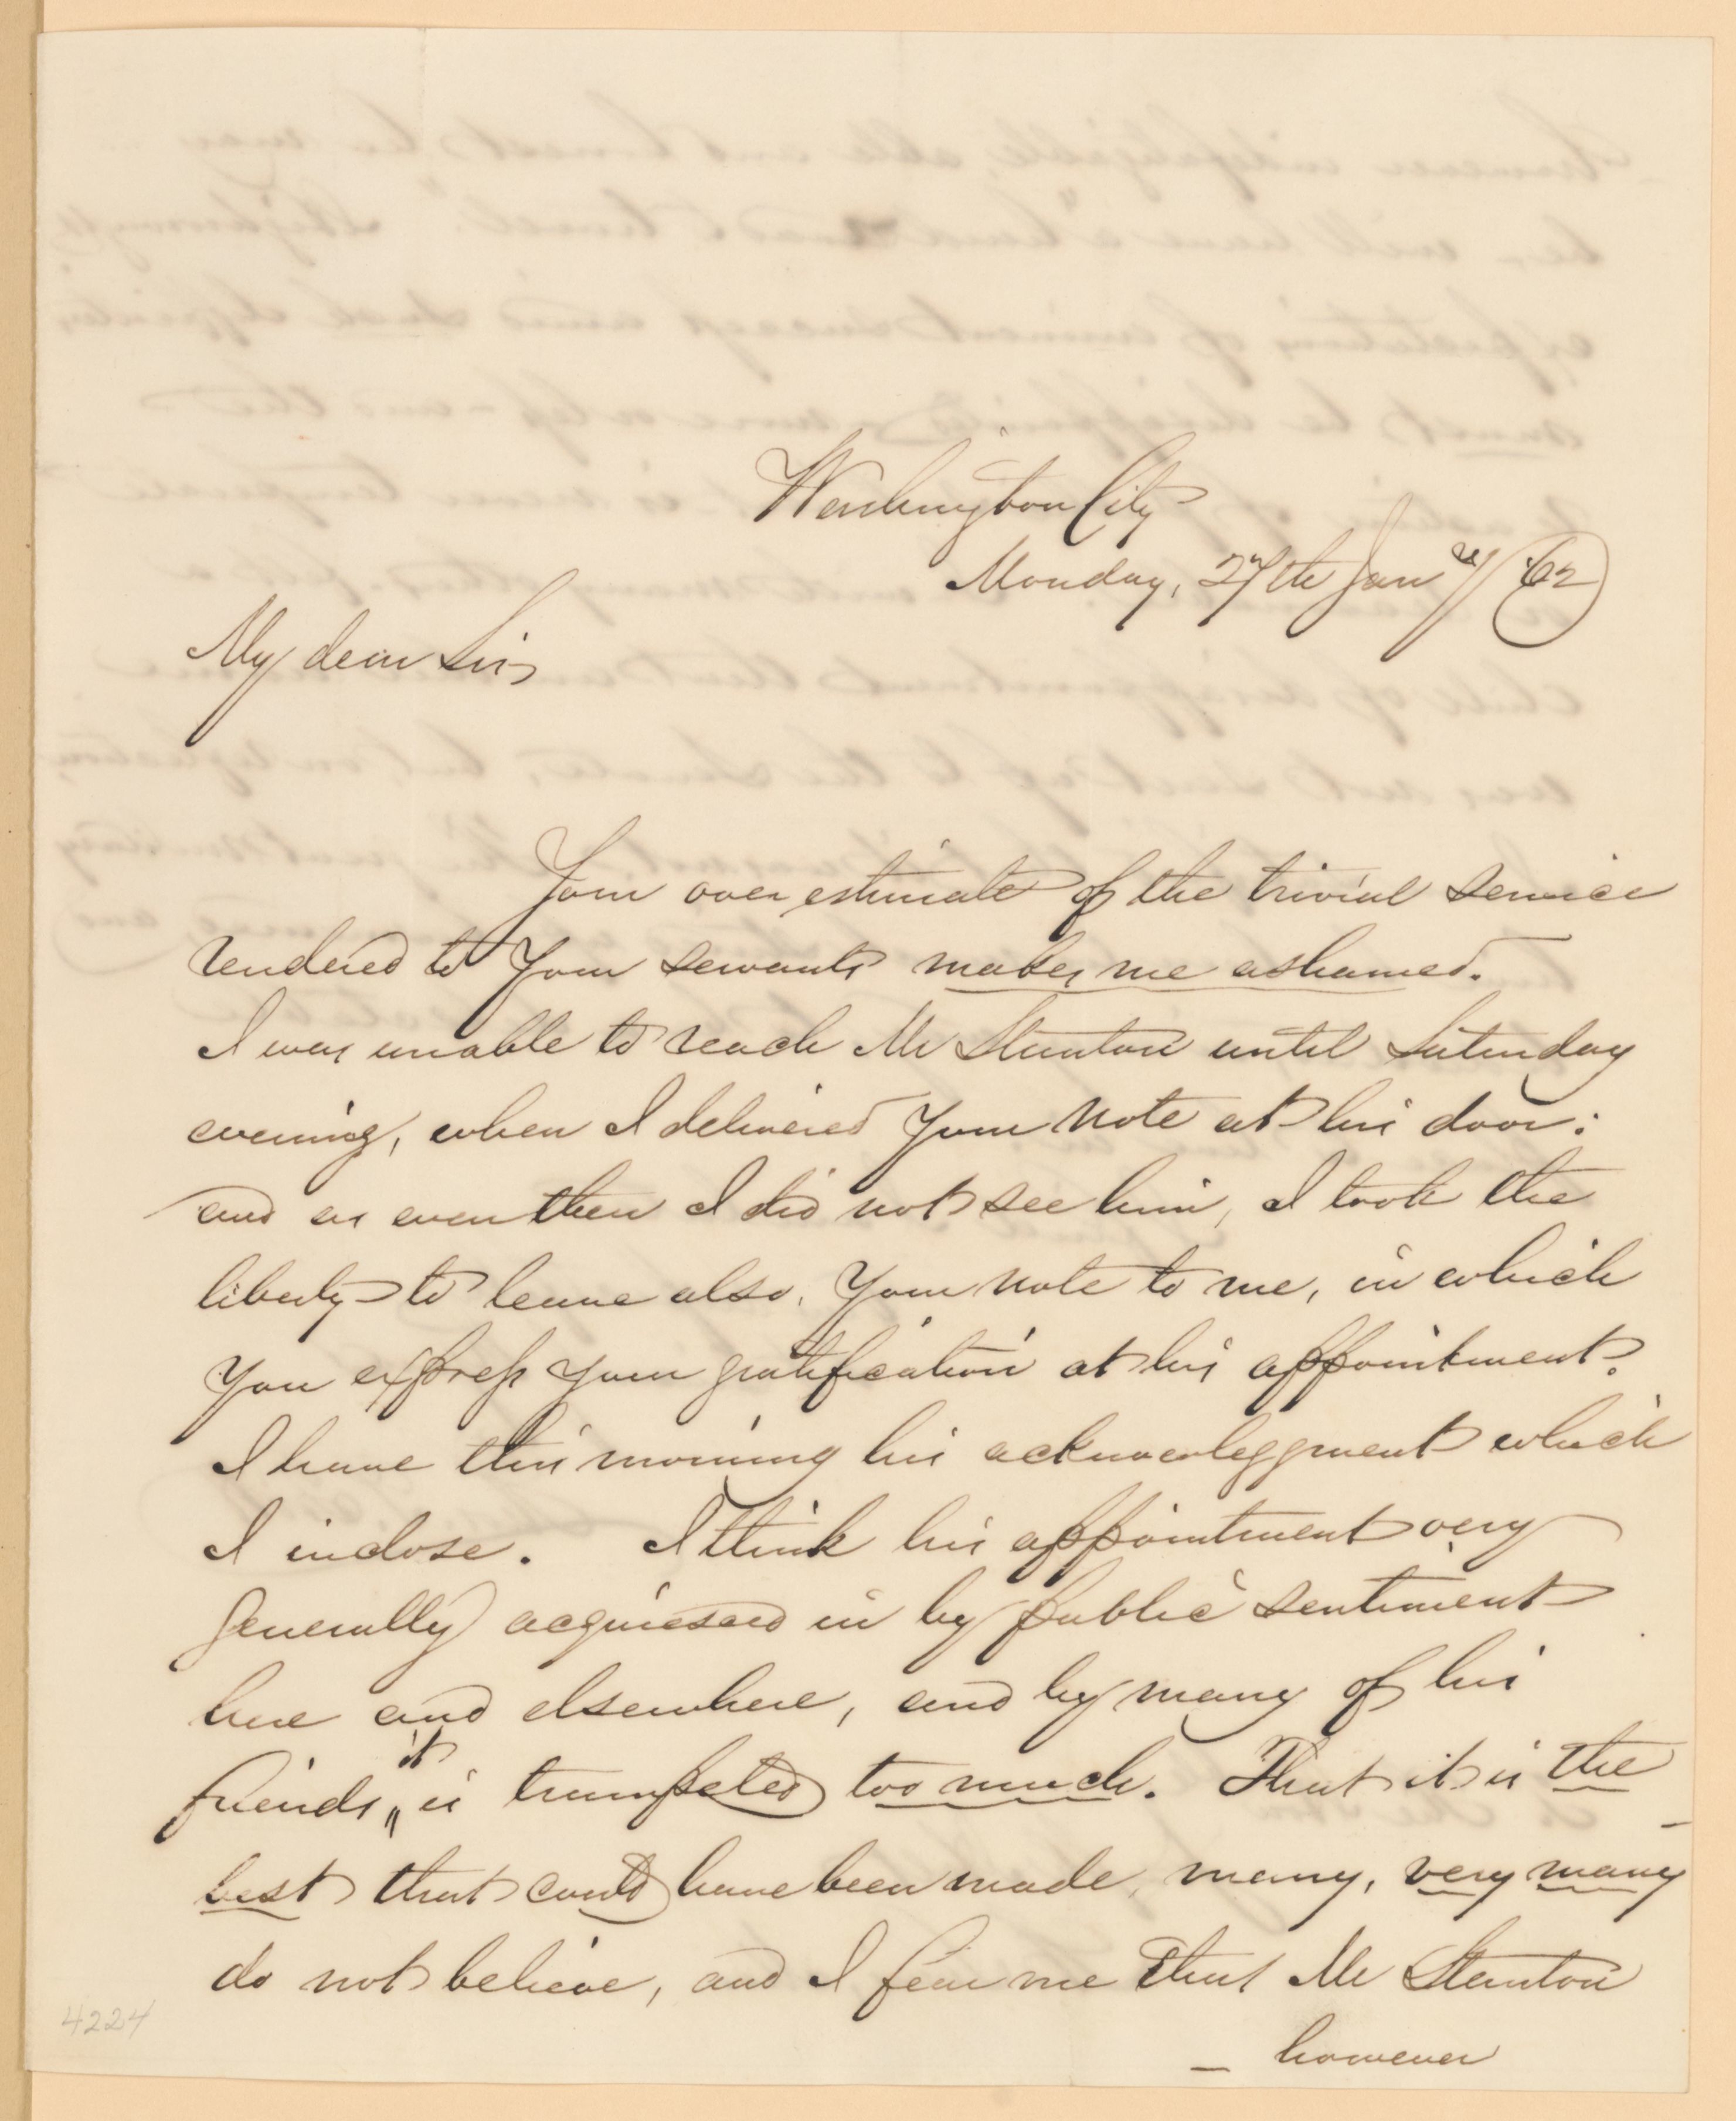 Washington City
Monday, 27th Jany/62
My dear Sir,
Your over estimate of the trivial service
rendered to Your servants makes me ashamed.
I was unable to reach Mr Stanton until Saturday
evening, when I delivered Your note at his door:
and as even then I did not see him, I took the
liberty to leave also, Your note to me, in which
You express Your gratification at his appointment.
I have this morning his acknowleggment which
I inclose. I think his appointment very
generally acquiesced in by public sentiment
here and elsewhere, and by many of his
friends, it is trumpeted too much. That it is the
best that could have been made, many, very many
do not believe, and I fear me that Mr Stanton
– however
4224